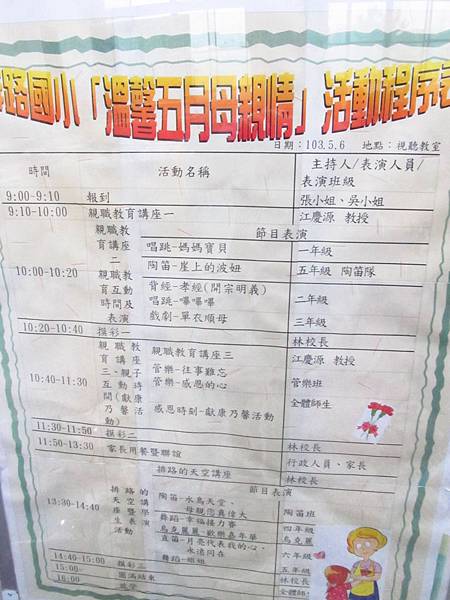 路國小「溫馨五月母親情」活動程序表
日期：103.5.6 地點：視聽教室
時間 活動名稱 主持人/表演人員/表演班級
9:00-9:10 報到 張小姐、吳小姐
9:10-10:00 親職教育講座一 江慶源 教授
10:00-10:20 親職教育講座二 親職教育互動時間及表演 節目表演
唱跳-媽媽寶貝 一年級
陶笛-崖上的波妞 五年級 陶笛隊
背經-孝經(開宗明義)
唱跳-嗶嗶嗶 二年級
戲劇-單衣順母 三年級
10:20-10:40 摸彩一 林校長
10:40-11:30 親職教育講座三、親子互動時間(獻康乃馨活動) 親職教育講座三 江慶源 教授
管樂-往事難忘
管樂-感恩的心 管樂班
感恩時刻-獻康乃馨活動 全體師生
11:30-11:50 摸彩二 林校長
11:50-13:30 家長用餐暨聯誼 行政人員、家長
排路的天空講座 林校長
13:30-14:40 排路的天空講座暨學生表演活動 節目表演
陶笛-水鳥天堂、
母親您真偉大 陶笛班
舞蹈-幸福接力賽 四年級
烏克麗麗-歡樂嘉年華 烏克麗
直笛-月亮代表我的心、
永遠同在 六年級
舞蹈-姐姐 五年級
14:40-15:00 摸彩三 林校長
15:00- 圓滿結束 全體師生
16:00 放學